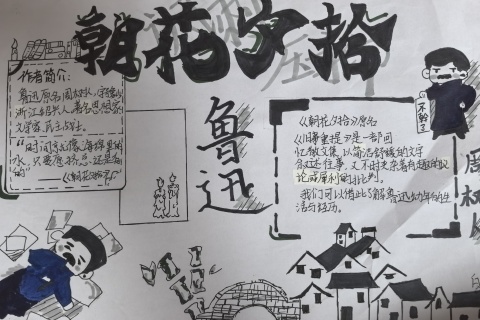 朝花夕拾
作者简介:
鲁迅原名周树人,
浙江绍兴人著名思想家
文学家,民主战士。
"时间就像海绵里的
水,只要愿挤总还是有
的"
——《朝花夕拾》
鲁
迅
不幹了
《朝花夕拾》原名
《旧事重提》是一部回
忆散文集,以简洁舒缓的文字
叙述往事,又不时夹杂着有趣的议
论或犀利的批判。
我们可以借此了解鲁迅幼年的生
活与经历。
周